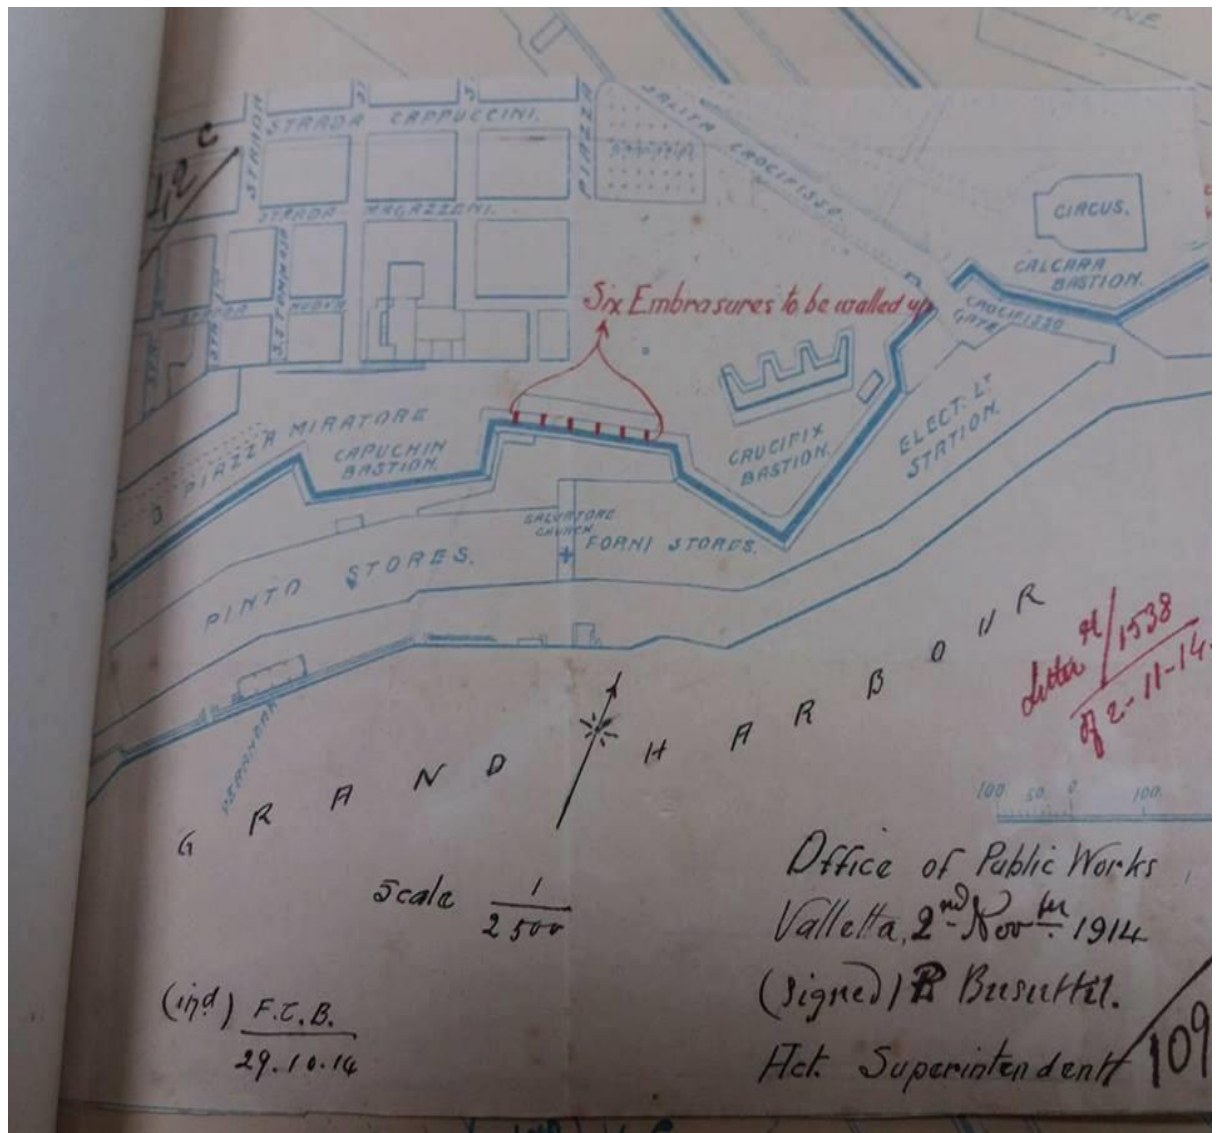 INE
STRADA CAPPUCCINI.
STRADA
PIAZZA
SALITA CROCIFISSO.
42 C
STRADA MAGAZZENI.
CIRCUS.
CALCARA
BASTION.
CROCIFISSO
GATE
Six Embrasures to be walled up
STRADA
NUOVA
S. TOMMASO
PIAZZA MIRATORE
CAPUCHIN
BASTION.
CRUCIFIX
BASTION.
ELECT. LT
STATION.
SALVATORE
CHURCH
FORNI STORES.
PINTO STORES.
GRAND HARBOUR
Letter
1538
of 2-11-14.
100 50 0 100.
Scale 1
2500
Office of Public Works
Valletta, 2nd Novber 1914
(signed) Busuttil.
Act. Superintendent
109
(ind) F.C.B.
29.10.14